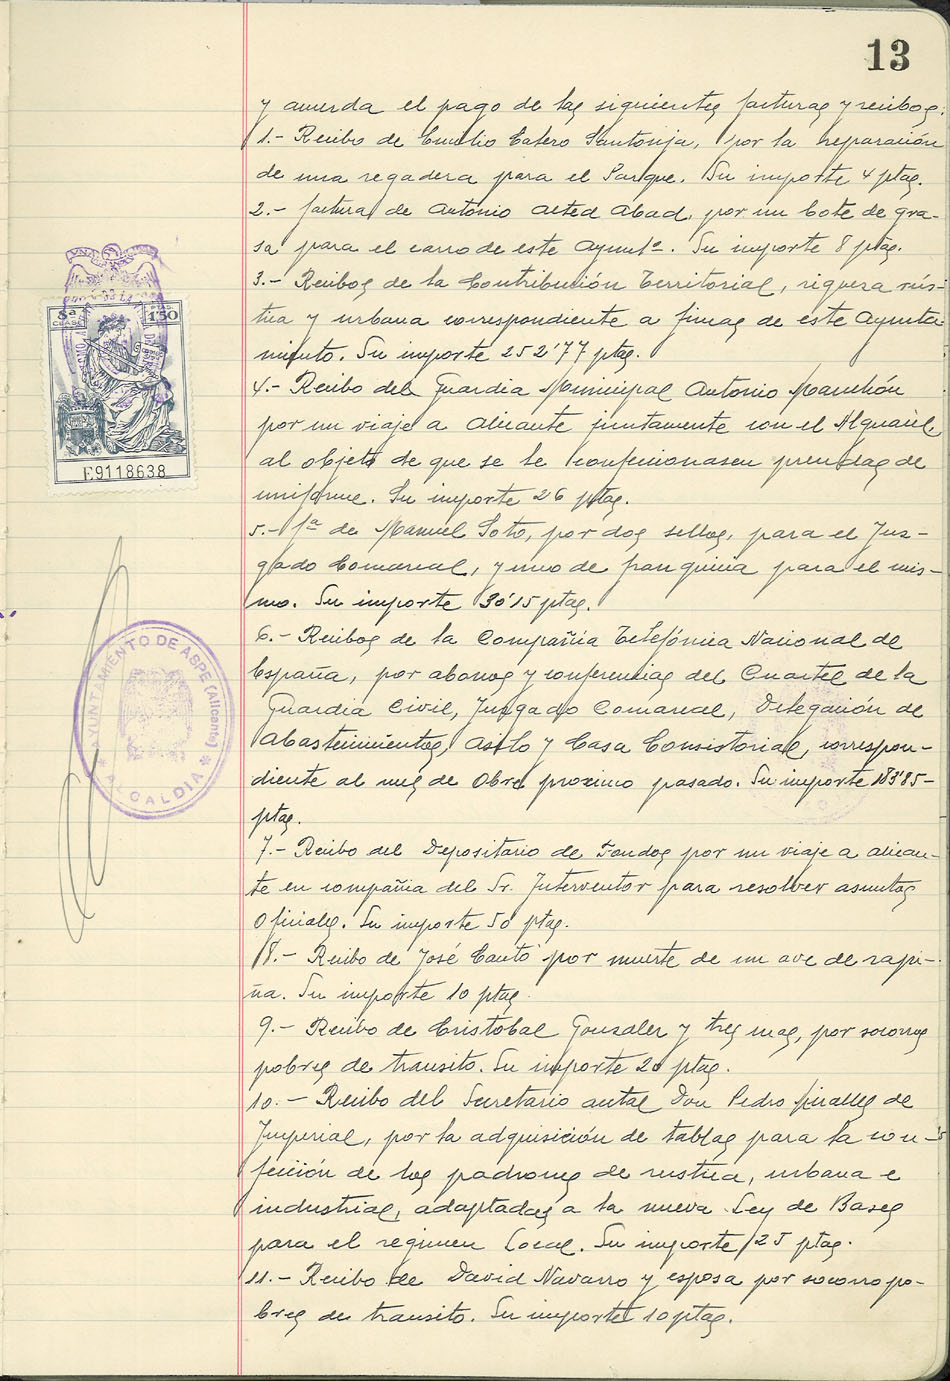 13
y acuerda el pago de las siguientes facturas y recibos:
1.- Recibo de Emilio Calero Santonja, por la reparación
de una regadera para el Parque. Su importe 4 ptas.
2.- factura de Antonio Alted Abad, por un bote de gra-
sa para el carro de este Ayuntº. Su importe 8 ptas.
3.- Recibos de la Contribución Territorial, riquera rús-
tica y urbana correspondiente a fincas de este Ayunta
miento. Su importe 252'77 ptas.
4.- Recibo del Guardia Municipal Antonio
por un viaje a Alicante juntamente con el Alguacil
al objeto de que se le confecionasen prendas de
uniforme. Su importe 26 ptas.
5.- fª de Manuel Soto, por dos sellos, para el Juz-
gado Comarcal, y uno de franquicia para el mis-
mo. Su importe 30'15 ptas.
6.- Recibos de la Compañia Telefónica Nacional de
España, por abonos y conferencias del Cuartel de la
Guardia Civil, Juzgado Comarcal, Delegación de
Abastecimientos, Asilo y Casa Consistorial, correspon-
diente al mes de Obre proximo pasado. Su importe 183'85-
ptas.
7.- Recibo del Depositario de Fondos por un viaje a Alican-
te en compañia del Sr. Interventor para resolver asuntos
Oficiales. Su importe 50 ptas.
8.- Recibo de José Cantó por muerte de un ave de rapi-
ña. Su importe 10 ptas.
9.- Recibo de Cristobal Gonzalez y tres mas, por socorros
pobres de transito. Su importe 20 ptas.
10.- Recibo del Secretario actal Don Pedro de
Imperial, por la adquisición de tablas para la con-
fección de los padrones de rustica, urbana e
industrial, adaptadas a la nueva Ley de Bases
para el regimen Local. Su importe 25 ptas.
11.- Recibo de David Navarro y esposa por socorro po-
bres de transito. Su importe 10 ptas.
8ª
CLASE
PTAS.
1'50
E9118638
AYUNTAMIENTO DE ASPE (Alicante)
* ALCALDIA *